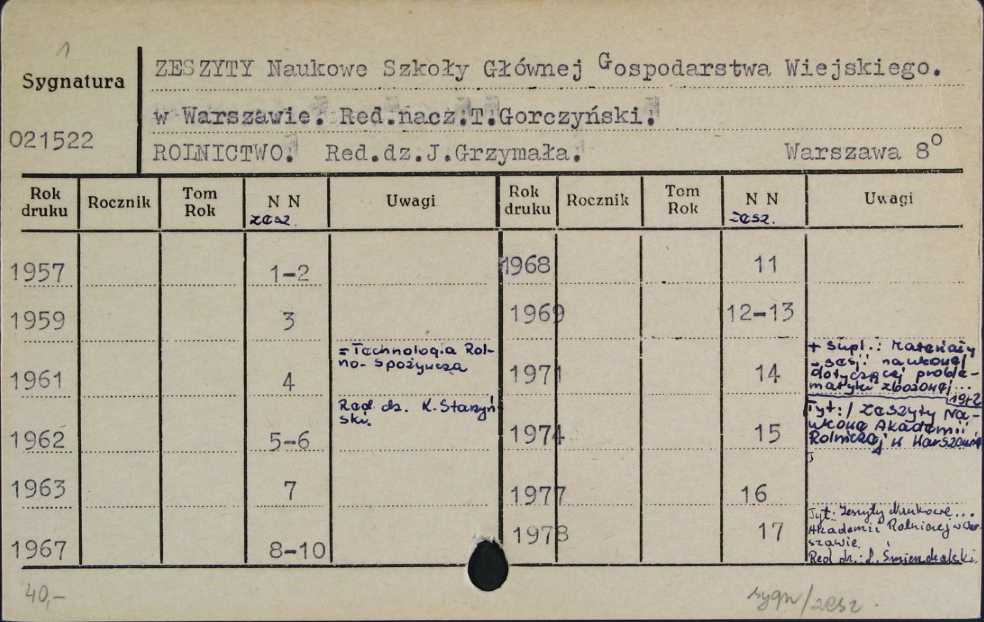 1
Sygnatura
021522
ZESZYTY Naukowe Szkoły Głównej Gospodarstwa Wiejskiego.
w Warszawie. Red.nacz.T.Gorczyński.
ROLNICTWO. Red.dz.J.Grzymała. Warszawa 8°
Rok druku Rocznik Tom Rok N N zesz. Uwagi Rok druku Rocznik Tom Rok N N zesz. Uwagi
1957 1-2
1959 3
= Technologia Rol-
no-Spożywcza
1961 4
Red dz. K. Starzyń
ski.
1962 5-6
1963 7
1967 8-10
1968 11
1969 12-13
+ Supl.: Materiały
sesji naukowej
1971 14
dotyczącej proble-
matyki zbożowej...
1972
Tyt:/ Zeszyty Na-
ukowe Akademii
1974 15
Rolniczej w Warszawie
1977 16
Tyt. Zeszyty Naukowe...
1978 17
Akademii Rolniczej w War-
szawie.
Red dz.:
40,-
sygn/zesz.